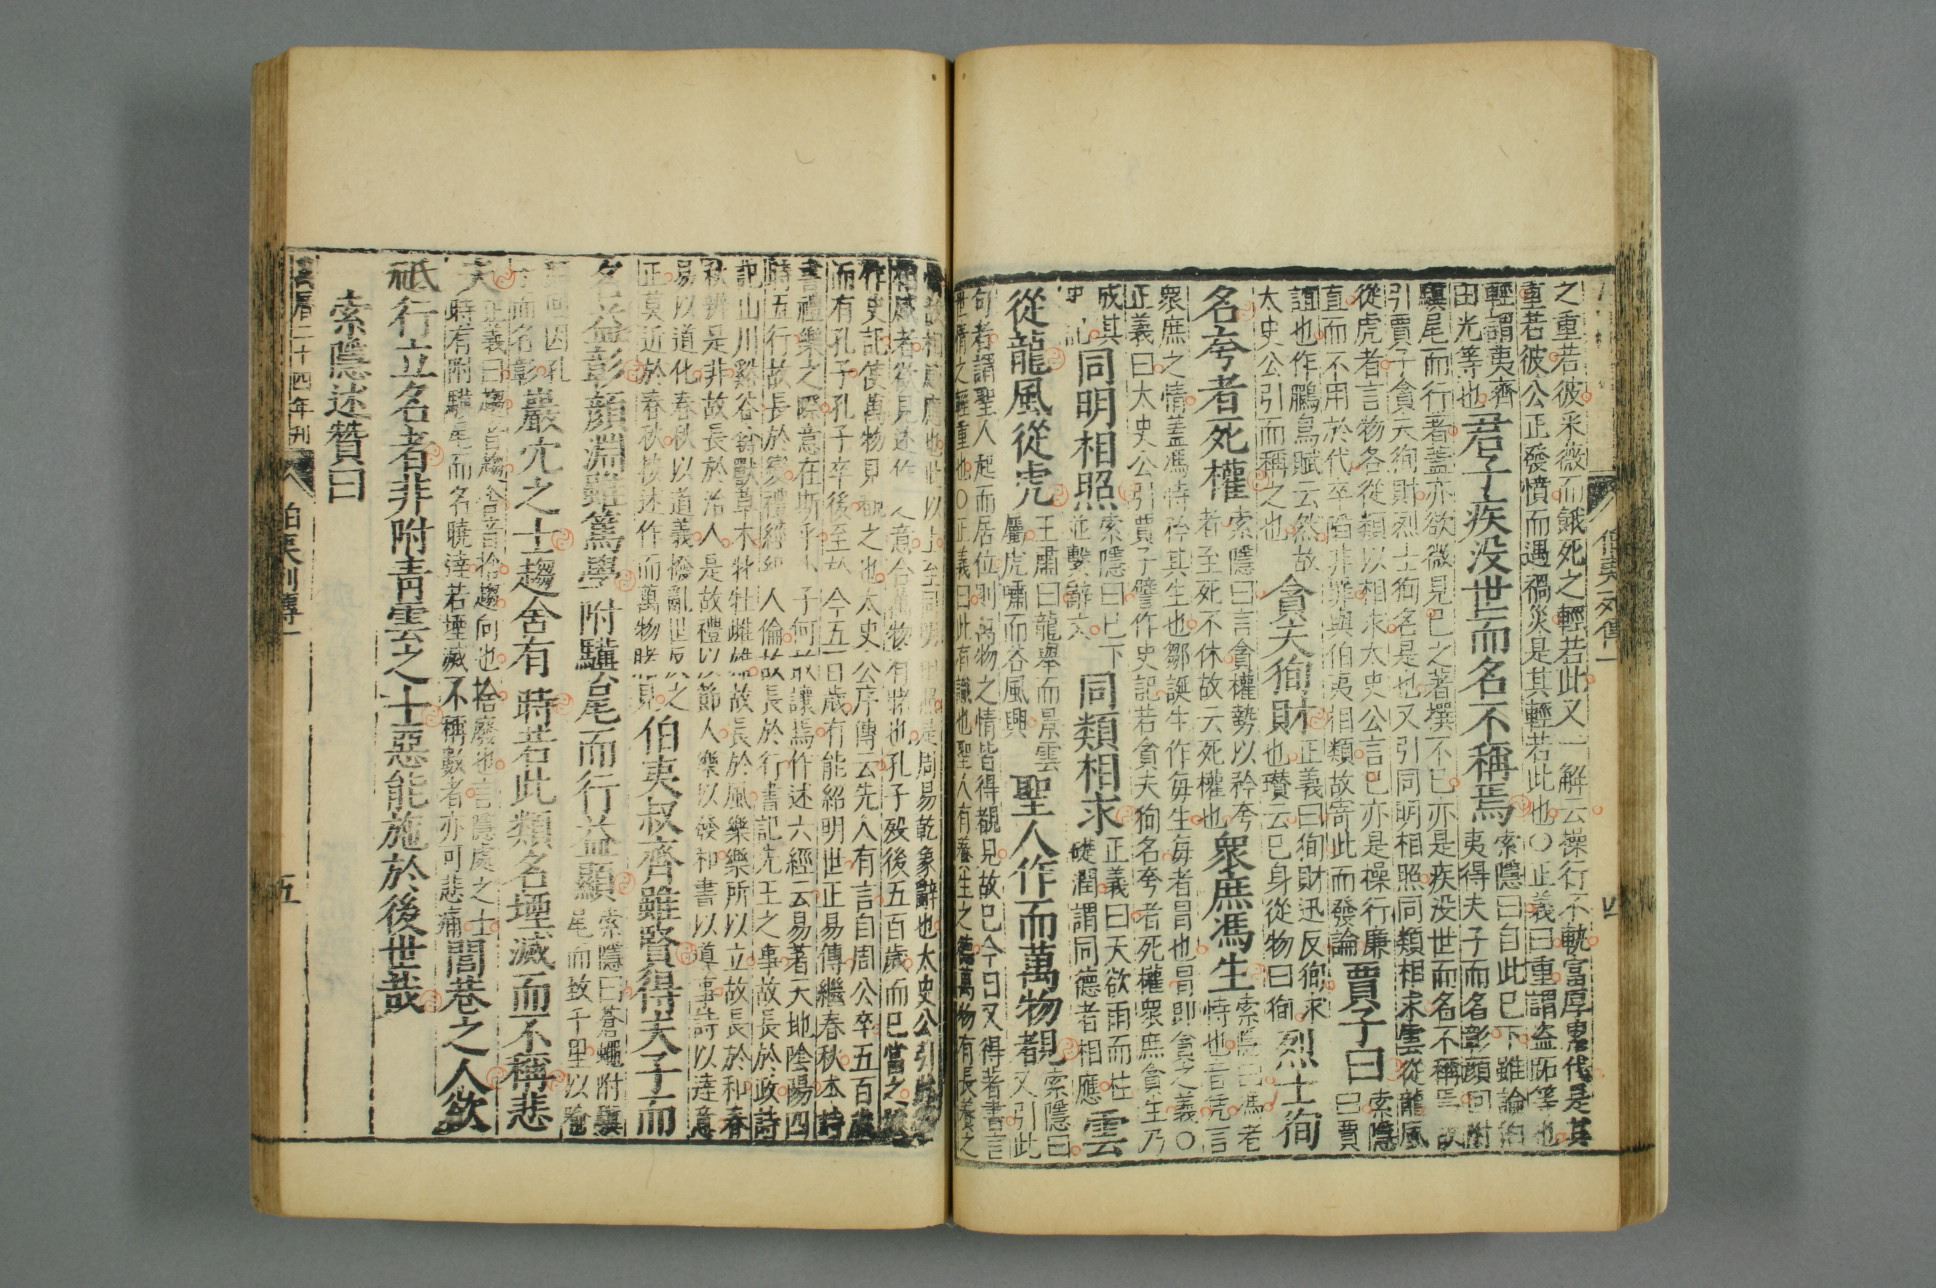 之重若彼采薇而餓死之輕若此又一解云操行不軌富厚累代是其
重若彼公正發憤而遇禍災是其輕若此也○正義曰重謂盜跖等也
輕謂夷齊田光等也 君子疾没世而名不稱焉 索隱曰自此已下雖論伯夷得夫子而名彰顔回附
驥尾而行著蓋亦欲微見已之著撰不已亦是疾没世而名不稱焉故
引賈子貪夫徇財烈士徇名是也又引同明相照同類相求雲從龍風
從虎者言物各從類以相求太史公言已亦是操行廉
直而不用於代卒陷非罪與伯夷相類故寄此而發論 賈子曰 索隱曰賈
誼也作鵩鳥賦云然故太史公引而稱之也 貪夫徇財 正義曰徇財迅反徇求也瓚云已身從物曰徇 烈士徇
名夸者死權 索隱曰言貪權勢以矜夸者至死不休故云死權也 衆庶馮生 索隱曰馮者恃也音凭言
衆庶之情蓋馮恃矜其生也鄒誕生作每生每者冒也冒即貪之義○
正義曰太史公引賈子譬作史記若貪夫徇名夸者死權衆庶貪生乃
成其史記 同明相照 索隱曰已下並繫辭文 同類相求 正義曰天欲雨而柱礎潤謂同德者相應 雲
從龍風從虎 王肅曰龍舉而景雲屬虎嘯而谷風興 聖人作而萬物覩 索隱曰又引此
句者謂聖人起而居位則萬物之情皆得覩見故已今日又得著書言
世情之輕重也○正義曰此有識也聖人有養生之德萬物有長養之
情故相感應也此以上至同明相照是周易乾象辭也太史公引此
相感者欲見述作之意合萬物有情也孔子歿後五百歲而已當之故
作史記使萬物見覩之也太史公序傳云先人有言自周公卒五百歲
而有孔子孔子卒後至於今五百歲有能紹明世正易傳繼春秋本詩
書禮樂之際意在斯乎小子何敢讓焉作述六經云易著天地陰陽四
時五行故長於變禮經紀人倫故長於行書記先王之事故長於政詩
記山川谿谷禽獸草木牝牡雌雄故長於風樂樂所以立故長於和春
秋辨是非故長於治人是故禮以節人樂以發和書以道事詩以達意
易以道化春秋以道義撥亂世反之
正莫近於春秋故述作而萬物覩見 伯夷叔齊雖賢得夫子而
名益彰顔淵雖篤學附驥尾而行益顯 索隱曰蒼蠅附驥尾而致千里以譬
顔回因孔子而名彰 巖穴之士趨舍有時若此類名堙滅而不稱悲
夫 正義曰趨音趣舍音捨趨向也捨廢也言隱處之士時有附驥尾而名曉達若堙滅不稱數者亦可悲痛 閭巷之人欲
砥行立名者非附青雲之士惡能施於後世哉
索隱述贊曰
萬曆二十四年刊
伯夷列傳一
五